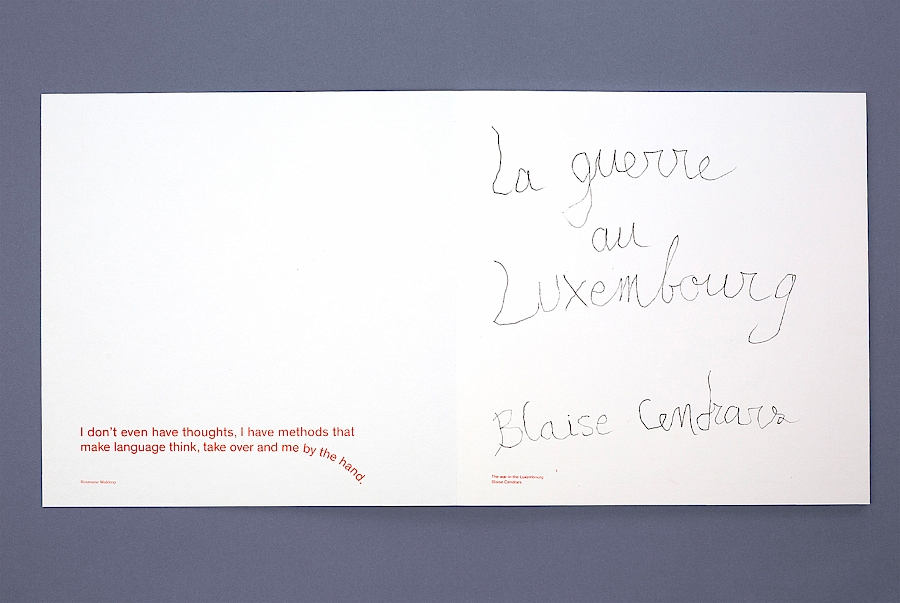 I don't even have thoughts, I have methods that
make language think, take over and me by the hand.
Rosmarie Waldrop
La guerre
au
Luxembourg
Blaise Cendrars
The war in the Luxembourg
Blaise Cendrars